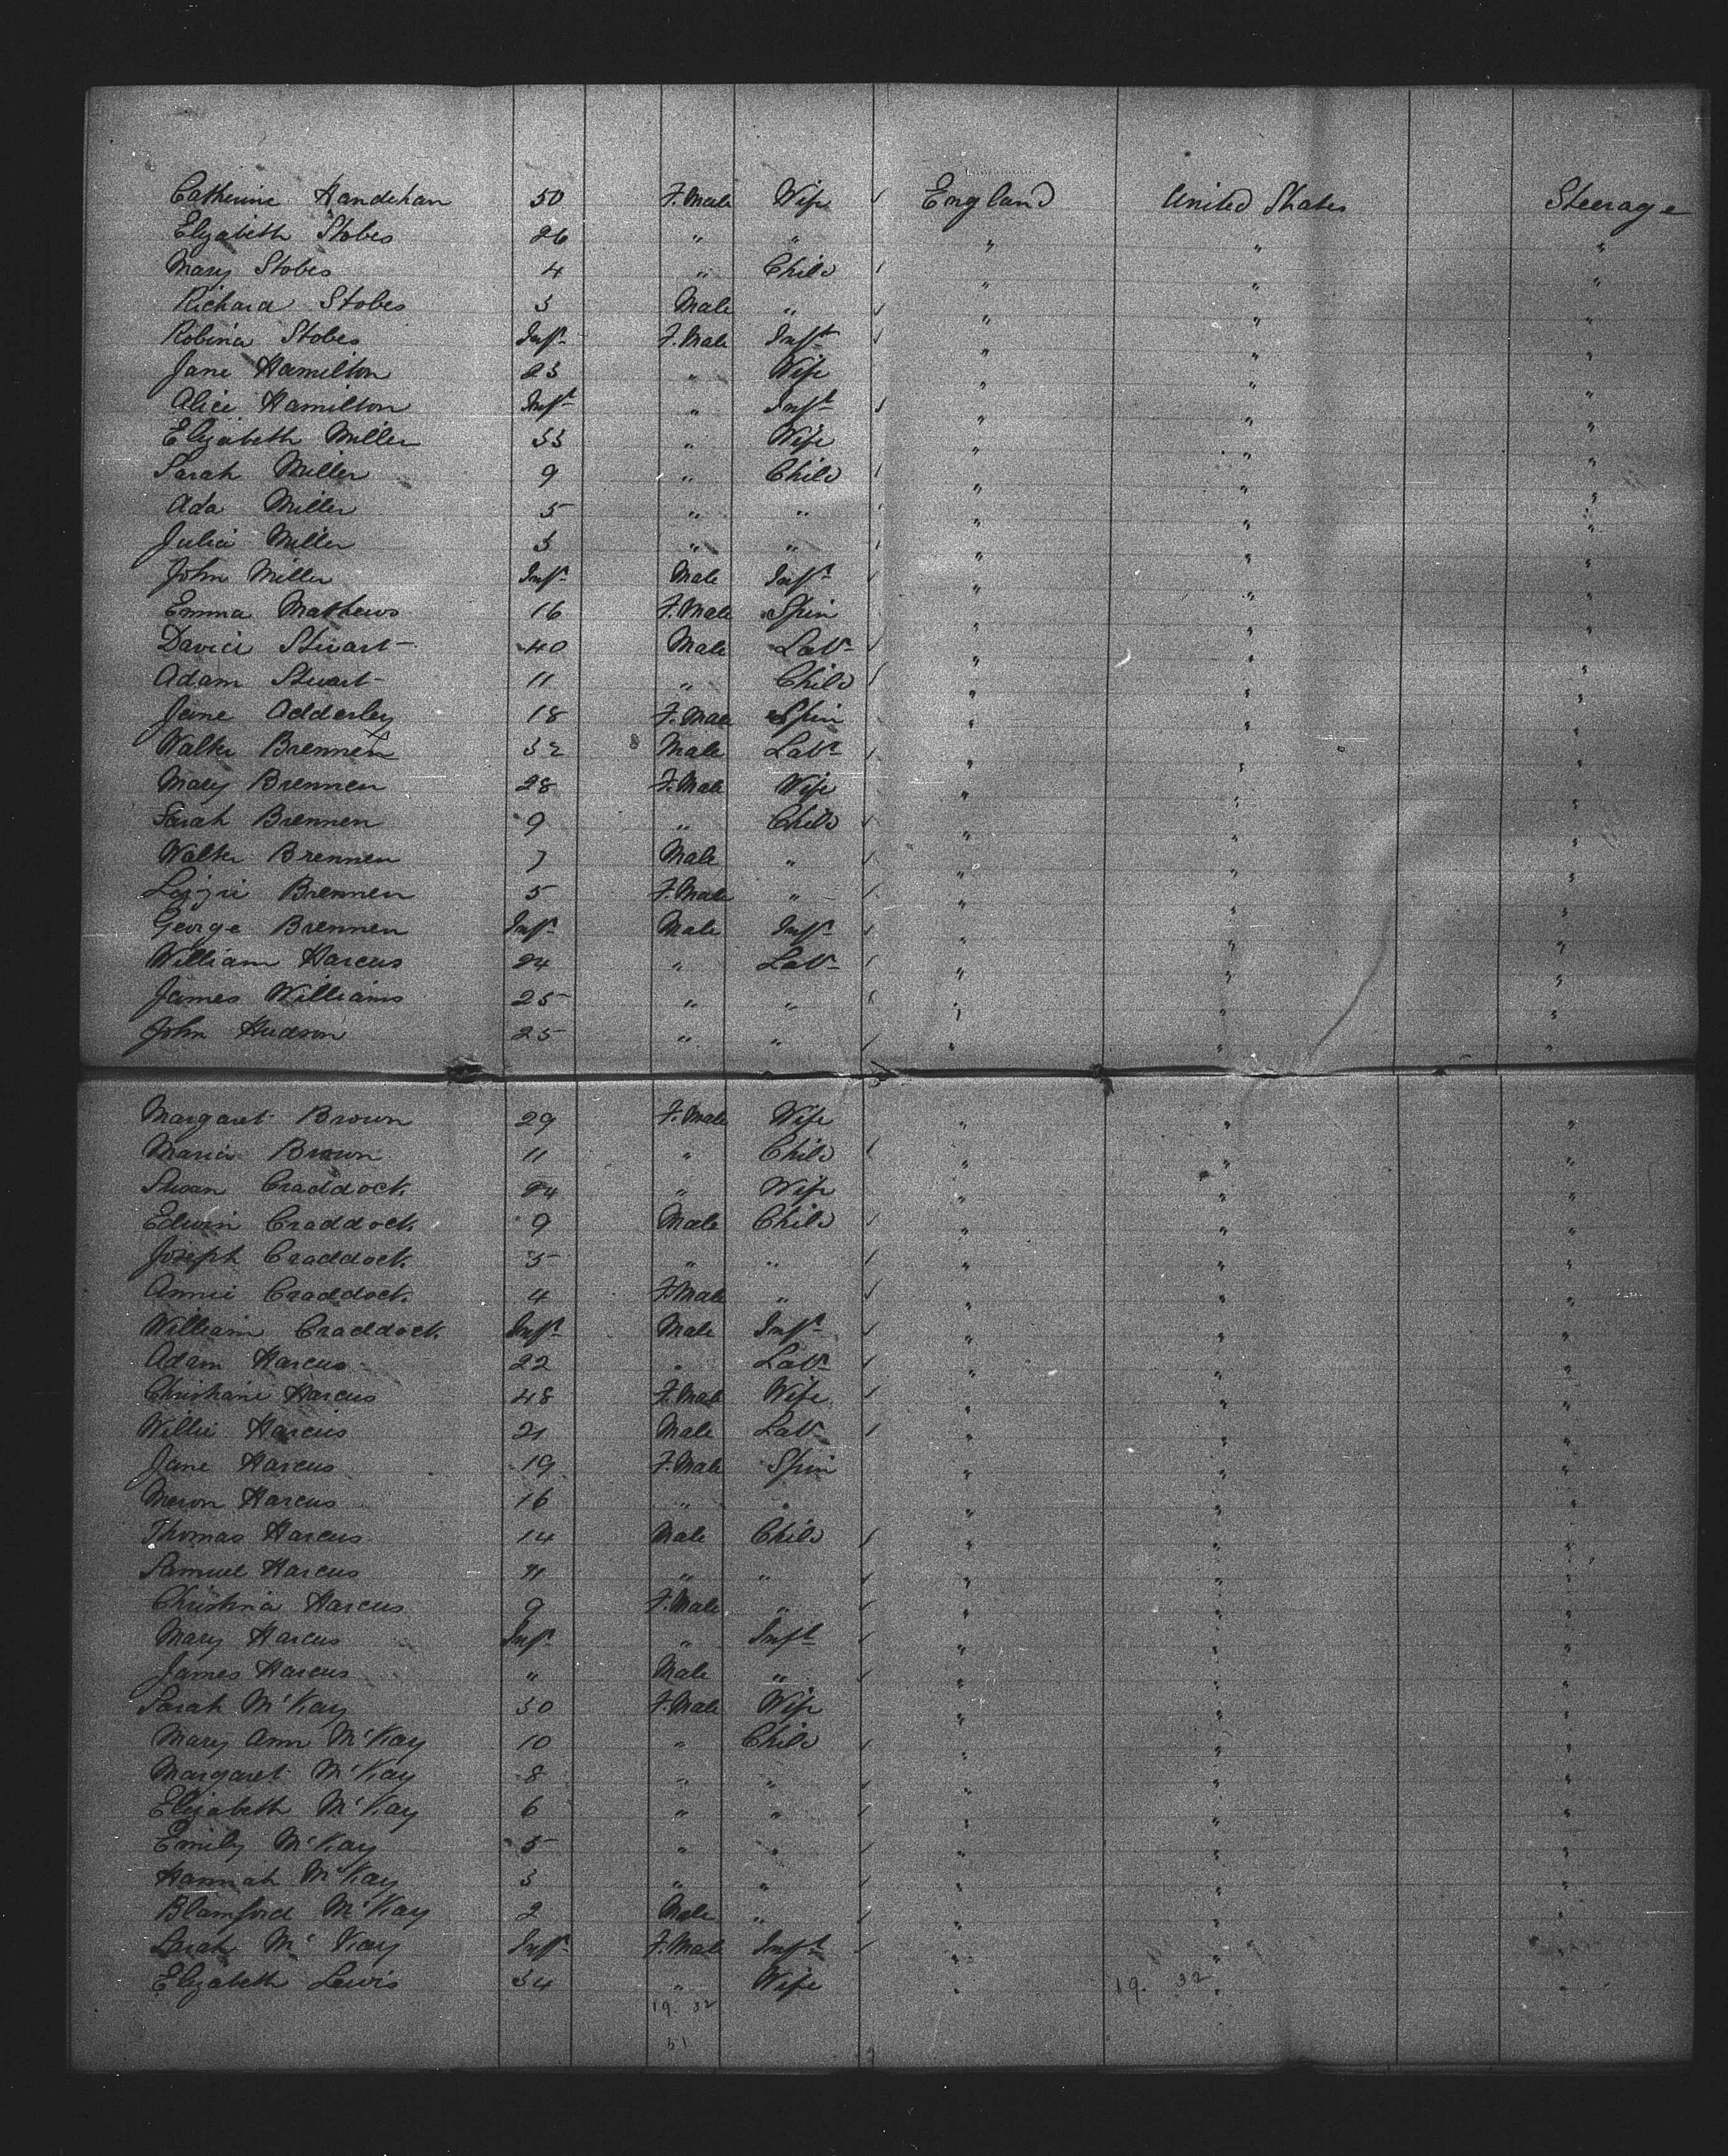 Catherine Handehan 50 F.Male Wife England United States Steerage
Elizabeth Stobes 26 " " " " "
Mary Stobes 4 " Child " " "
Richard Stobes 3 Male " " " "
Robina Stobes Inft F.Male Inft " " "
Jane Hamilton 23 " Wife " " "
Alice Hamilton Inft " Inft " " "
Elizabeth Miller 33 " Wife " " "
Sarah Miller 9 " Child " " "
Ada Miller 5 " " " " "
Julia Miller 3 " " " " "
John Miller Inft Male Inft " " "
Emma Mathews 16 F.Male Spin " " "
David Stuart 40 Male Labr " " "
Adam Stuart 11 " Child " " "
Jane Adderley 18 F.Male Spin " " "
Walter Brennen 32 Male Labr " " "
Mary Brennen 28 F.Male Wife " " "
Sarah Brennen 9 " Child " " "
Walter Brennen 7 Male " " " "
Lizzie Brennen 5 F.Male " " " "
George Brennen Inft Male Inft " " "
William Harcus 24 " Labr " " "
James Williams 25 " " " " "
John Hudson 25 " " " " "
Margaret Brown 29 F.Male Wife " " "
Maria Brown 11 " Child " " "
Susan Craddock 24 " Wife " " "
Edwin Craddock 9 Male Child " " "
Joseph Craddock 5 " " " " "
Annie Craddock 4 F.Male " " " "
William Craddock Inft Male Inft " " "
Adam Harcus 22 " Labr " " "
Christiane Harcus 48 F.Male Wife " " "
Willie Harcus 21 Male Labr " " "
Jane Harcus 19 F.Male Spin " " "
Meron Harcus 16 " " " " "
Thomas Harcus 14 Male Child " " "
Samuel Harcus 11 " " " " "
Christina Harcus 9 F.Male " " " "
Mary Harcus Inft " Inft " " "
James Harcus " Male " " " "
Sarah McKay 30 F.Male Wife " " "
Mary Ann McKay 10 " Child " " "
Margaret McKay 8 " " " " "
Elizabeth McKay 6 " " " " "
Emily McKay 5 " " " " "
Hannah McKay 3 " " " " "
Blamford McKay 2 Male " " " "
Sarah McKay Inft F.Male Inft " " "
Elizabeth Lewis 34 " Wife " 19. 32 " "
19 32
51